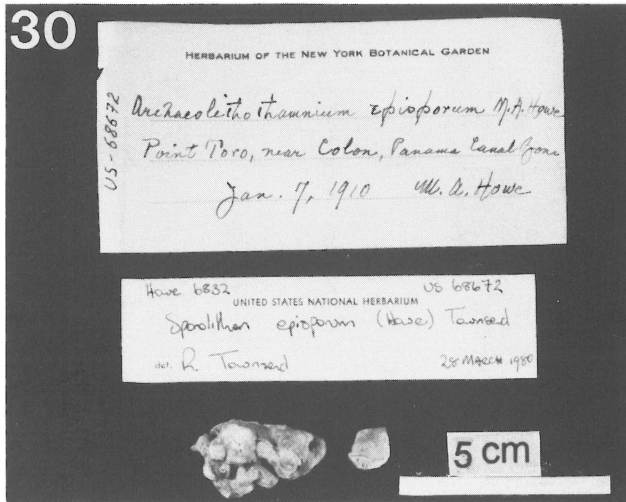 30
HERBARIUM OF THE NEW YORK BOTANICAL GARDEN
US-68672
Archaeolithothamnium episporum M.A. Howe
Point Toro, near Colon, Panama Canal Zone
Jan. 7, 1910 M. A. Howe
Howe 6832 US 68672
UNITED STATES NATIONAL HERBARIUM
Sporolithon episporum (Howe) Townsend
det. R. Townsend 28 MARCH 1980
5 cm